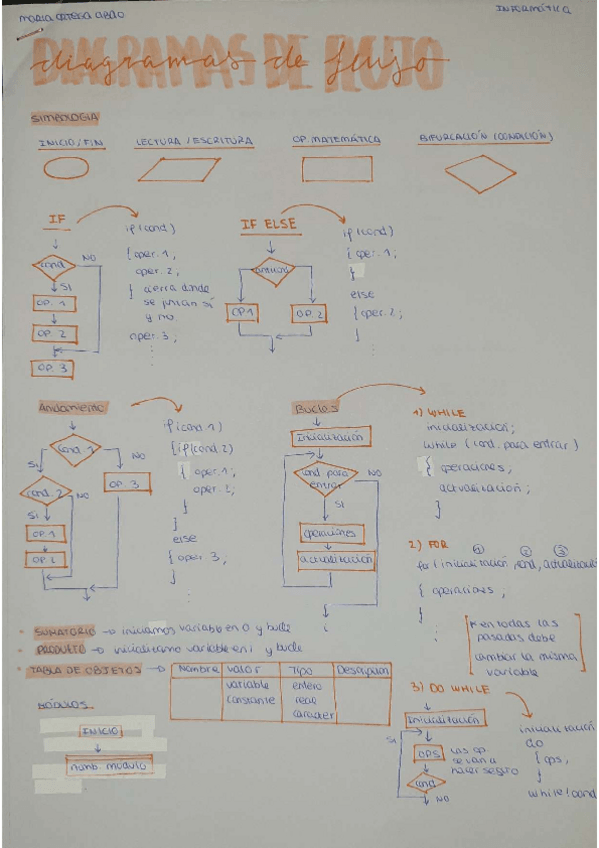 MARIA ORTEGA
INFORMÁTICA
DIAGRAMAS DE FLUJO
diagramas de flujo
SIMBOLOGIA
INICIO/FIN
LECTURA/ESCRITURA
OP. MATEMÁTICA
BIFURCACIÓN (CONDICIÓN)
IF
cond
NO
SI
OP. 1
OP. 2
OP. 3
if (cond)
{ oper. 1;
oper. 2;
} cierra donde
se juntan sí
y no.
oper. 3;
IF ELSE
OP 1
OP. 2
if (cond)
{ oper. 1;
}
else
{ oper. 2;
}
Anidamiento
cond. 1
SI
NO
cond. 2
NO
OP. 3
SI
OP. 1
OP 2
if (cond 1)
{ if (cond 2)
{ oper. 1;
oper. 2;
}
}
else
{ oper 3;
}
Bucles
Inicialización
cond para
entrar
NO
SI
operaciones
actualización
1) WHILE
inicialización;
while (cond. para entrar)
{ operaciones;
actualización;
}
2) FOR
① ② ③
for (inicialización, cond, actualización
{ operaciones;
}
* en todas las
pasadas debe
cambiar la misma
variable
• SUMATORIO → iniciamos variable en 0 y bucle
• PRODUCTO → inicializamo variable en 1 y bucle
• TABLA DE OBJETOS →
Nombre Valor Tipo Descripción
variable entero
constante real
caracter
MÓDULOS
INICIO
nomb. modulo
3) DO WHILE
Inicialización
SI
OPS
Las op.
se van a
hacer seguro
cond
NO
inicialización
do
{ ops;
}
while (cond